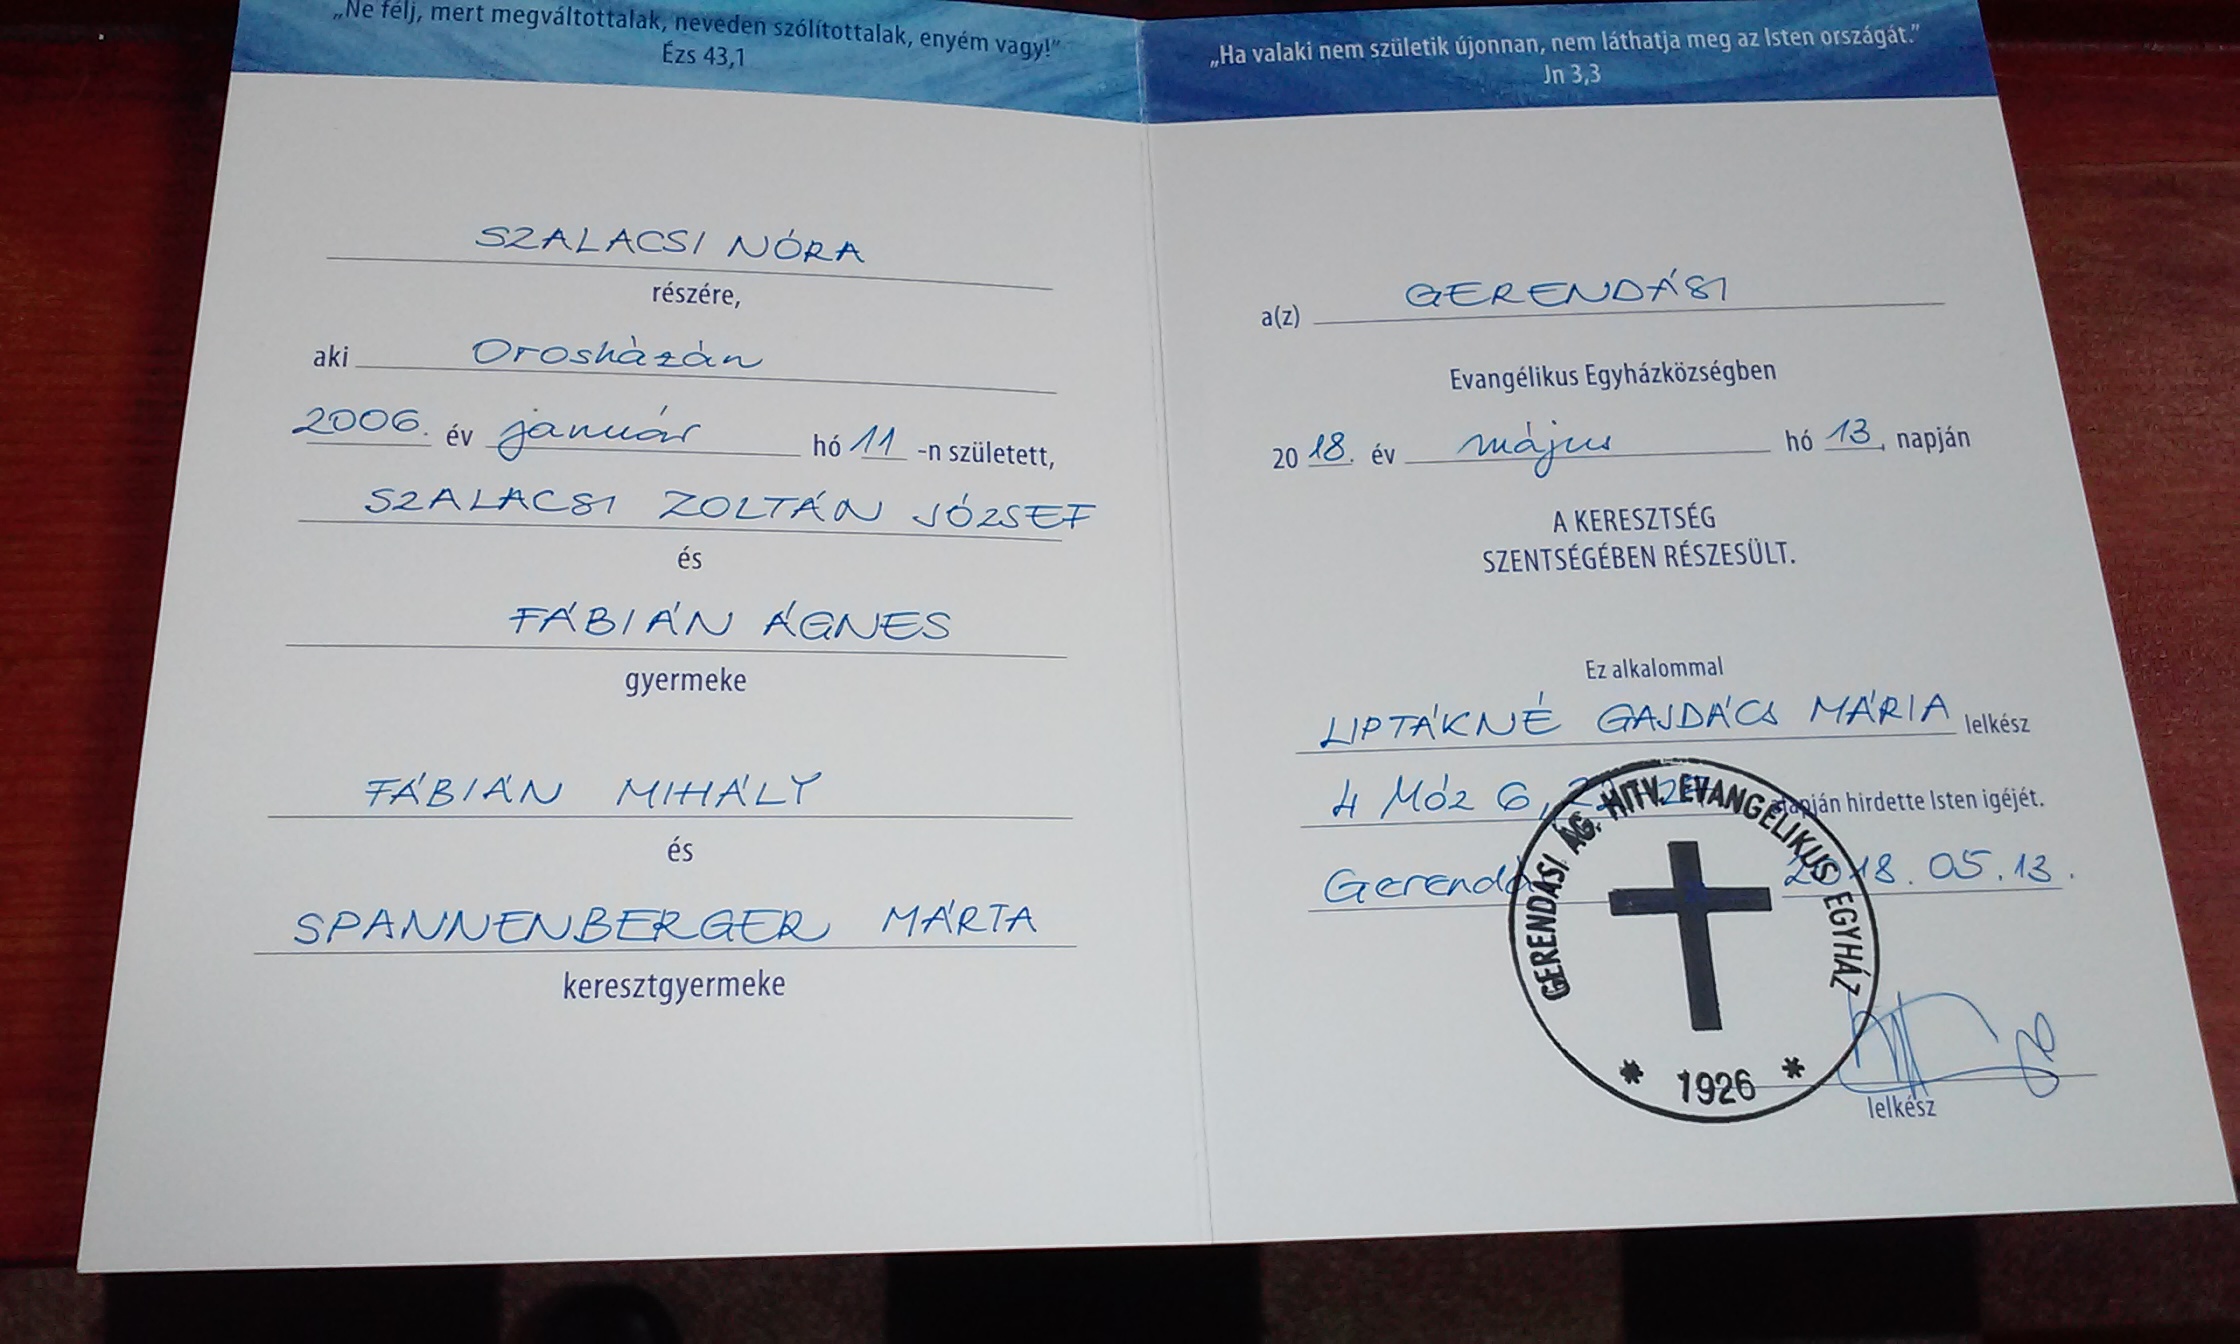 „Ne félj, mert megváltottalak, neveden szólítottalak, enyém vagy!”
Ézs 43,1
SZALACSI NÓRA
részére,
aki Orosházán
2006. év január hó 11 -n született,
SZALACSI ZOLTÁN JÓZSEF
és
FÁBIÁN ÁGNES
gyermeke
FÁBIÁN MIHÁLY
és
SPANNENBERGER MÁRTA
keresztgyermeke
„Ha valaki nem születik újonnan, nem láthatja meg az Isten országát.”
Jn 3,3
a(z) GERENDÁSI
Evangélikus Egyházközségben
2018. év május hó 13. napján
A KERESZTSÉG
SZENTSÉGÉBEN RÉSZESÜLT.
Ez alkalommal
LIPTÁKNÉ GAJDÁCS MÁRIA lelkész
4 Móz 6, alapján hirdette Isten igéjét.
2018.05.13.
GERENDÁSI ÁG. HITV. EVANGÉLIKUS EGYHÁZ
* 1926 *
lelkész